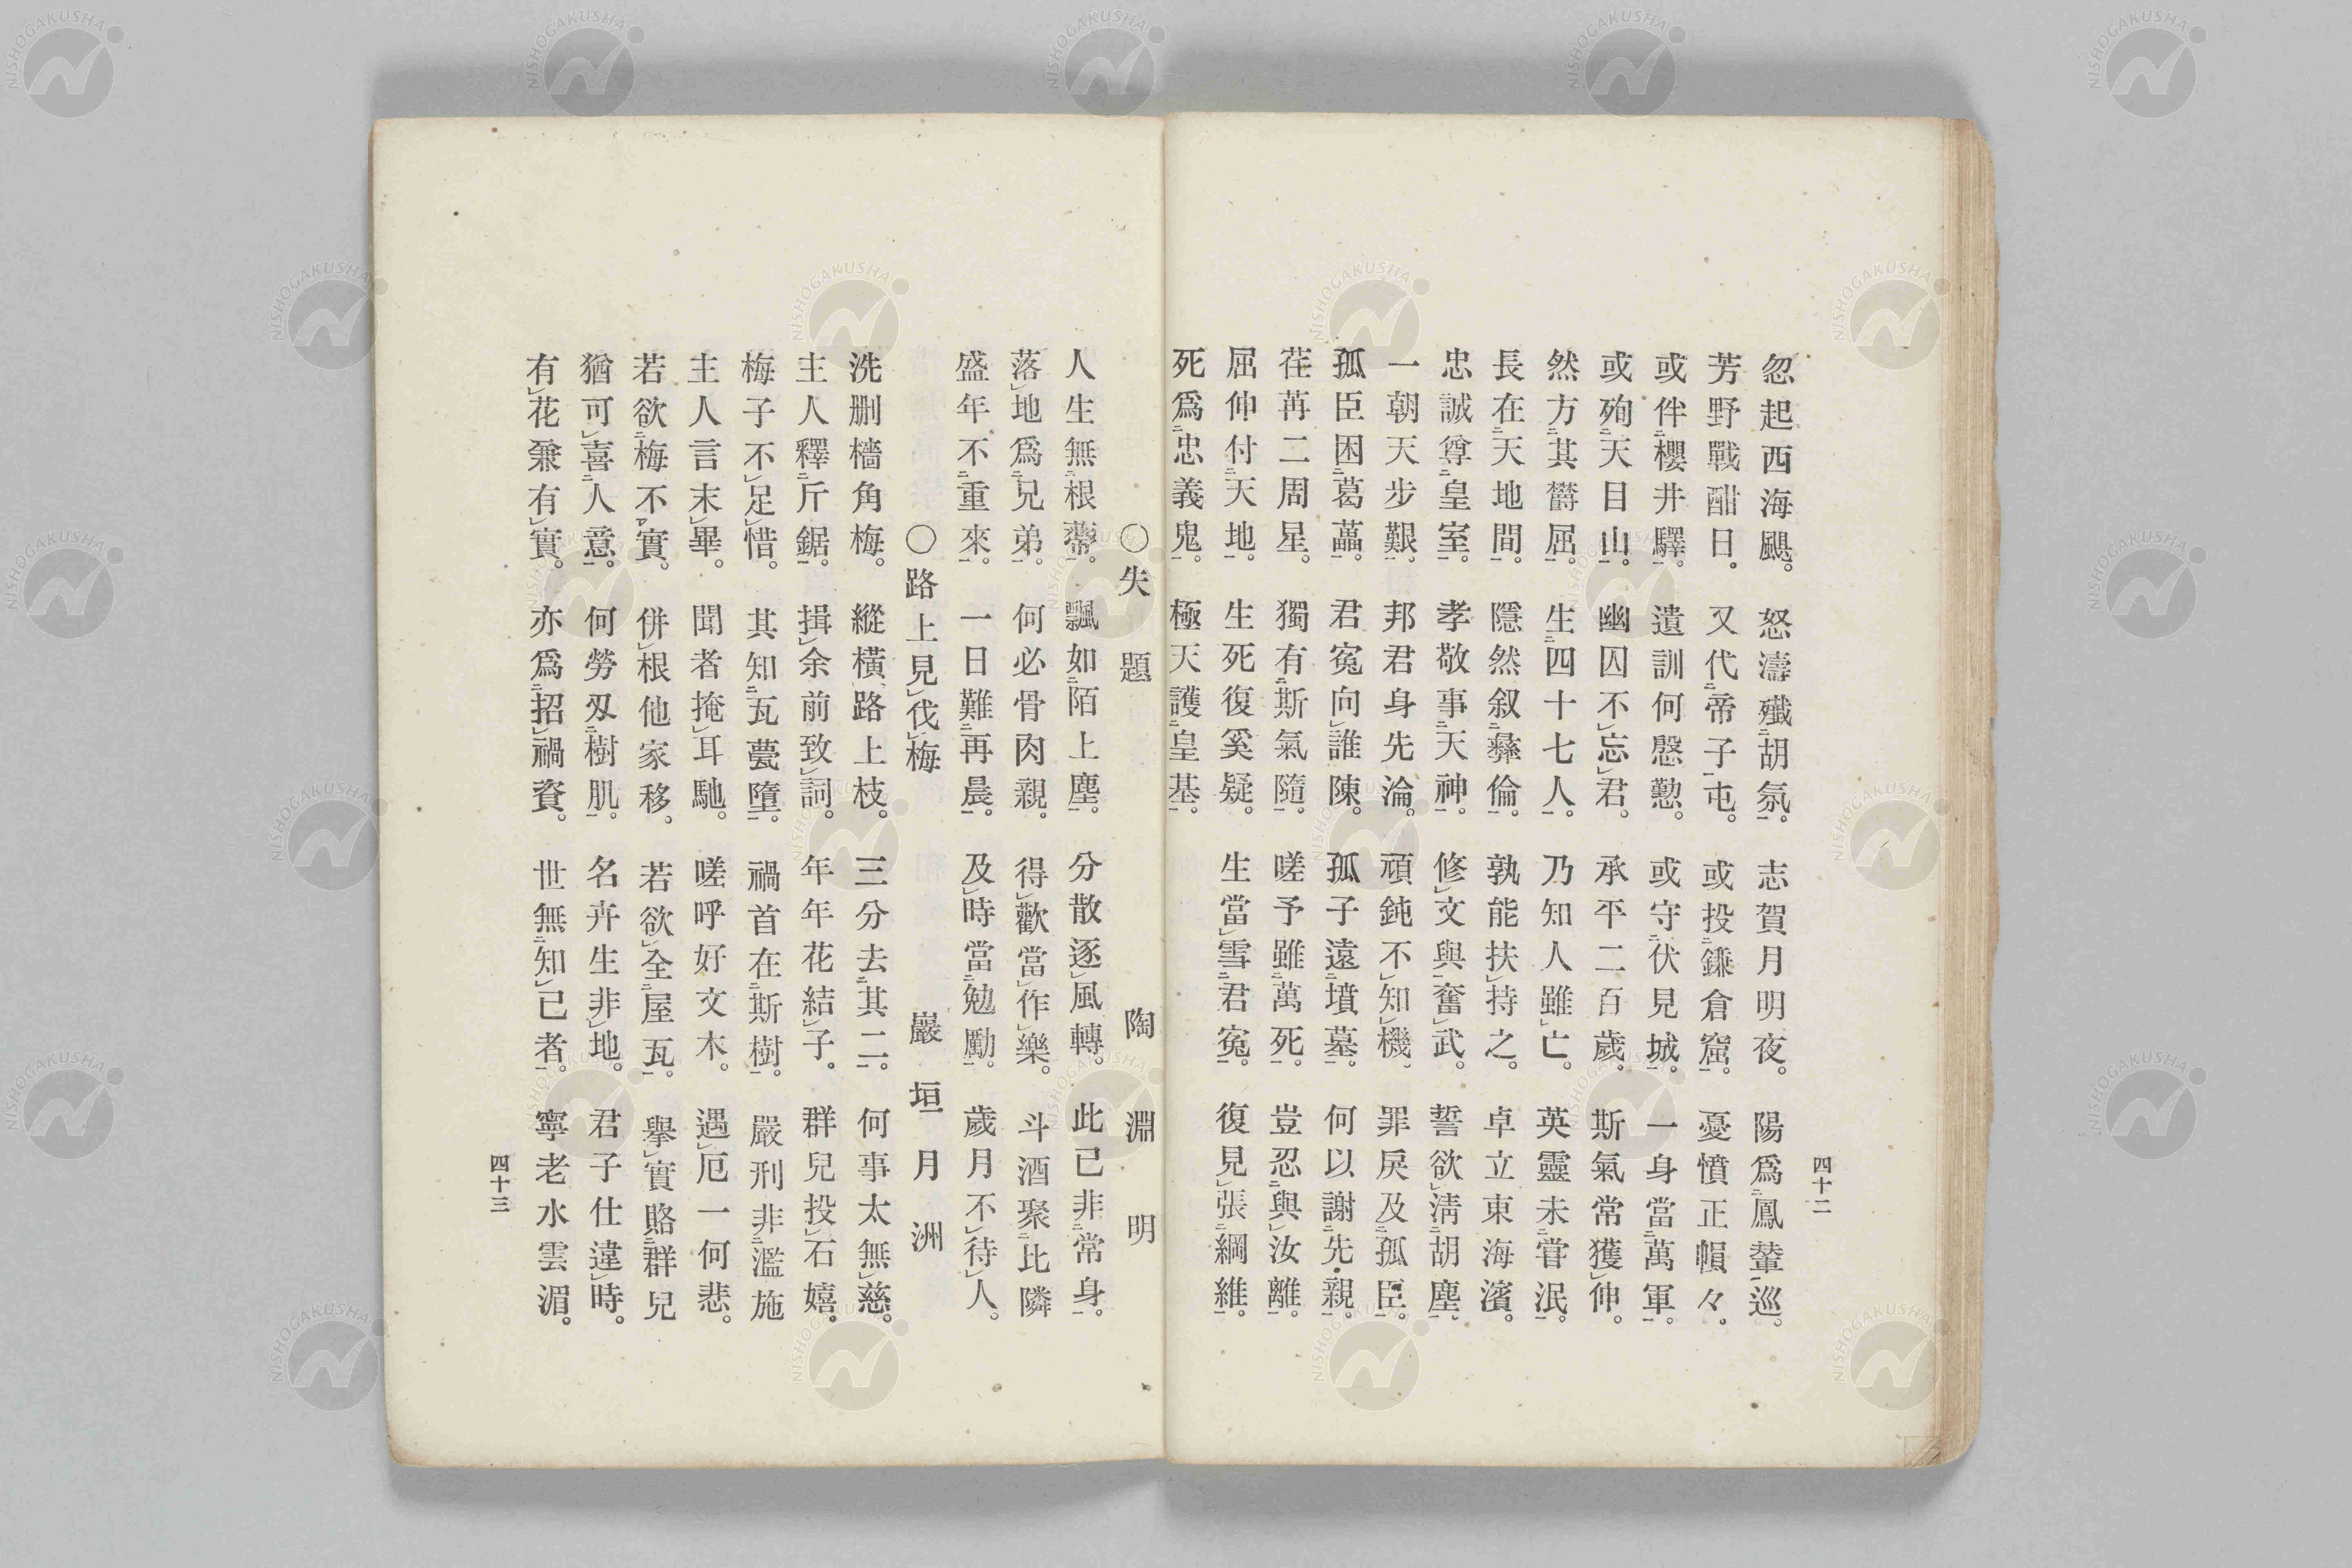 四十二
忽起西海颶。怒濤殲胡氛。志賀月明夜。陽爲鳳輦巡。
芳野戰酣日。又代帝子屯。或投鎌倉窟。憂憤正悁々。
或伴櫻井驛。遺訓何慇懃。或守伏見城。一身當萬軍。
或殉天目山。幽囚不忘君。承平二百歲。斯氣常獲伸。
然方其欝屈。生四十七人。乃知人雖亡。英靈未甞泯。
長在天地間。隱然叙彝倫。孰能扶持之。卓立東海濱。
忠誠尊皇室。孝敬事天神。修文與奮武。誓欲淸胡塵。
一朝天步艱。邦君身先淪。頑鈍不知機、罪戾及孤臣。
孤臣困葛藟。君寃向誰陳。孤子遠墳墓。何以謝先親。
荏苒二周星。獨有斯氣隨。嗟予雖萬死。豈忍與汝離。
屈伸付天地。生死復奚疑。生當雪君寃。復見張綱維。
死爲忠義鬼。極天護皇基。
〇失題　陶淵明
人生無根蔕。飄如陌上塵。分散逐風轉。此已非常身。
落地爲兄弟。何必骨肉親。得歡當作樂。斗酒聚比隣
盛年不重來。一日難再晨。及時當勉勵。歲月不待人。
〇路上見伐梅　巖垣月洲
洗删檣角梅。縱橫路上枝。三分去其二。何事太無慈。
主人釋斤鋸。揖余前致詞。年年花結子。群兒投石嬉。
梅子不足惜。其知瓦甍墮。禍首在斯樹。嚴刑非濫施
主人言末畢。聞者掩耳馳。嗟呼好文木。遇厄一何悲。
若欲梅不實。併根他家移。若欲全屋瓦。擧實賂群兒
猶可喜人意。何勞刄樹肌。名卉生非地。君子仕違時。
有花兼有實。亦爲招禍資。世無知己者。寧老水雲湄。
四十三
NISHOGAKUSHA